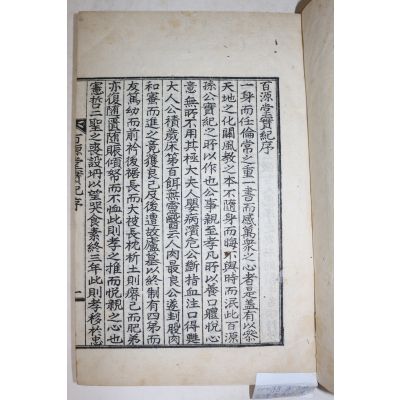 百源堂實紀序
一身而任倫常之重一書而感萬衆之心者是盖有以參
天地之化關風敎之本不隨身而晦不與時而泯此百源
孫公實紀之所以作也公事親至孝凡所以養口體悅心
意無所不用其極大夫人嬰病濱危公斷指血注口得甦
大人公積歲床第百餌無靈醫言人肉最良公遂刲股肉
和齏而進之竟獲良已及後遭故廬墓以終制有四弟而
友篤幼而前衿後裾長而大被長枕析土則瘠己而肥弟
亦復隨匱隨賑傾帑而不恤此則孝之推而悅親之心也
憲哲二聖之喪設坍以望哭食素終三年此則孝移於忠
百源堂實紀序
一